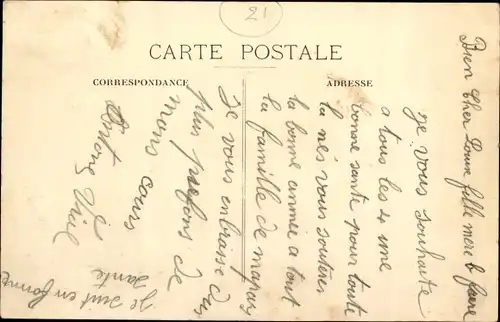 21
CARTE POSTALE
CORRESPONDANCE
ADRESSE
Bien Cher Doux fille mere b faere
Je vous souhaite
a tous les 4 une
bonne santé pour toute
la nés vous souteres
la bonne année a tout
la famille de mapar
Je vous enbrasse des
plus profons de
mons cour
Antone Viel
Je suit en bonne
santé